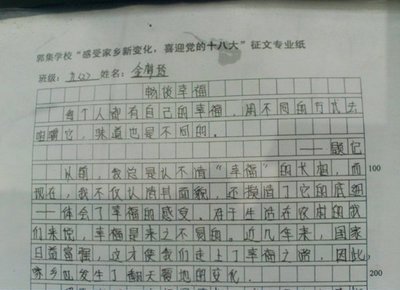 郭集学校“感受家乡新变化，喜迎党的十八大”征文专业纸
班级：九(2) 姓名：
畅谈幸福
每个人都有自己的幸福，用不同的方式去
咀嚼它，味道也是不同的。
——题记
从前，我总是认不清“幸福”的长相，而
现在，我不仅认清其面貌，还摸清了它的底细
——体会了幸福的感受。在于生活在农村的我
们来说，幸福是来之不易的。近几年来，国家
日益富强，这才使我们走上了幸福之路，因此
家乡也发生了翻天覆地的变化。
100
200